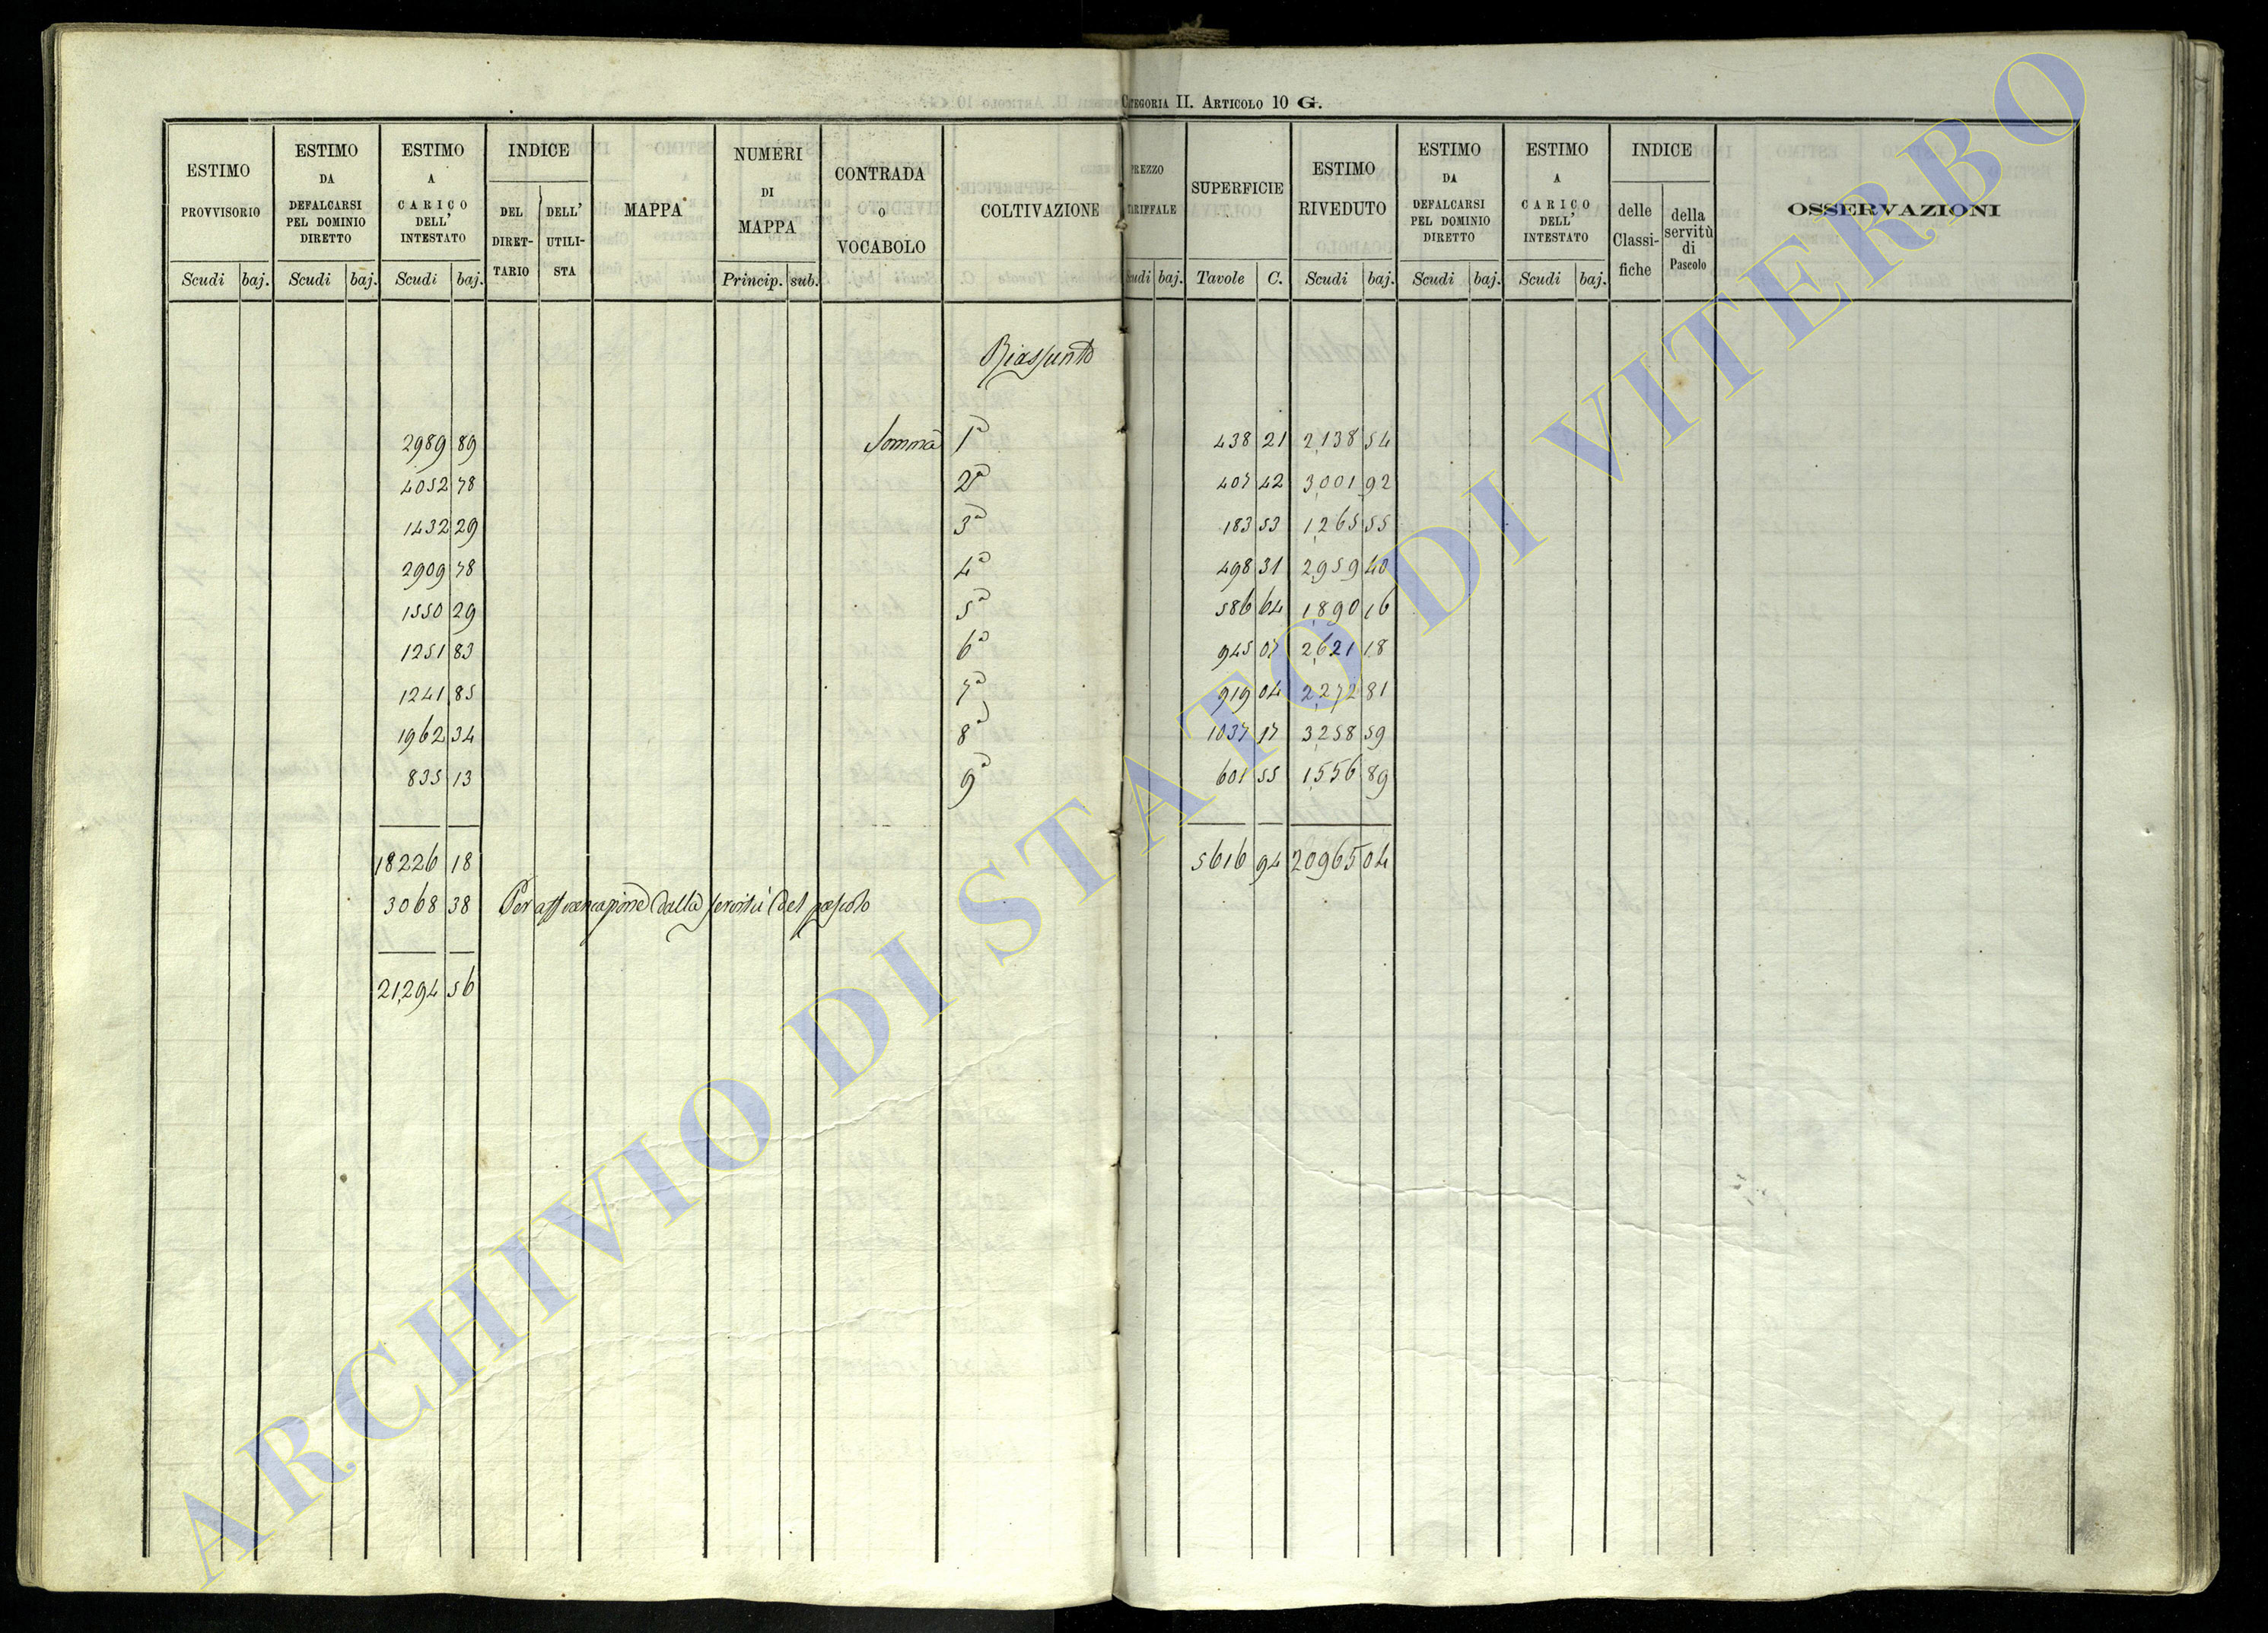 CATEGORIA II. ARTICOLO 10 G.
ESTIMO PROVVISORIO
Scudi baj.
ESTIMO DA DEFALCARSI PEL DOMINIO DIRETTO
Scudi baj.
ESTIMO A CARICO DELL' INTESTATO
Scudi baj.
INDICE
DEL DIRET-TARIO
DELL' UTILI-STA
MAPPA
NUMERI DI MAPPA
Princip. sub.
CONTRADA O VOCABOLO
COLTIVAZIONE
PREZZO TARIFFALE
Scudi baj.
SUPERFICIE
Tavole C.
ESTIMO RIVEDUTO
Scudi baj.
ESTIMO DA DEFALCARSI PEL DOMINIO DIRETTO
Scudi baj.
ESTIMO A CARICO DELL' INTESTATO
Scudi baj.
INDICE
delle Classi-fiche
della servitù di Pascolo
OSSERVAZIONI
Riassunto
2989 89 Somma 1ª 438 21 2,138 54
4052 78 2ª 407 42 3,001 92
1432 29 3ª 183 53 1,265 55
2909 78 4ª 498 31 2,959 40
1550 29 5ª 586 64 1,890 16
1251 83 6ª 945 07 2,621 18
1241 85 7ª 919 04 2,272 81
1962 34 8ª 1037 17 3,258 59
835 13 9ª 601 55 1,556 89
18226 18 5616 94 20965 04
3068 38 Per affrancazione dalla servitù del pascolo
21,294 56
ARCHIVIO DI STATO DI VITERBO